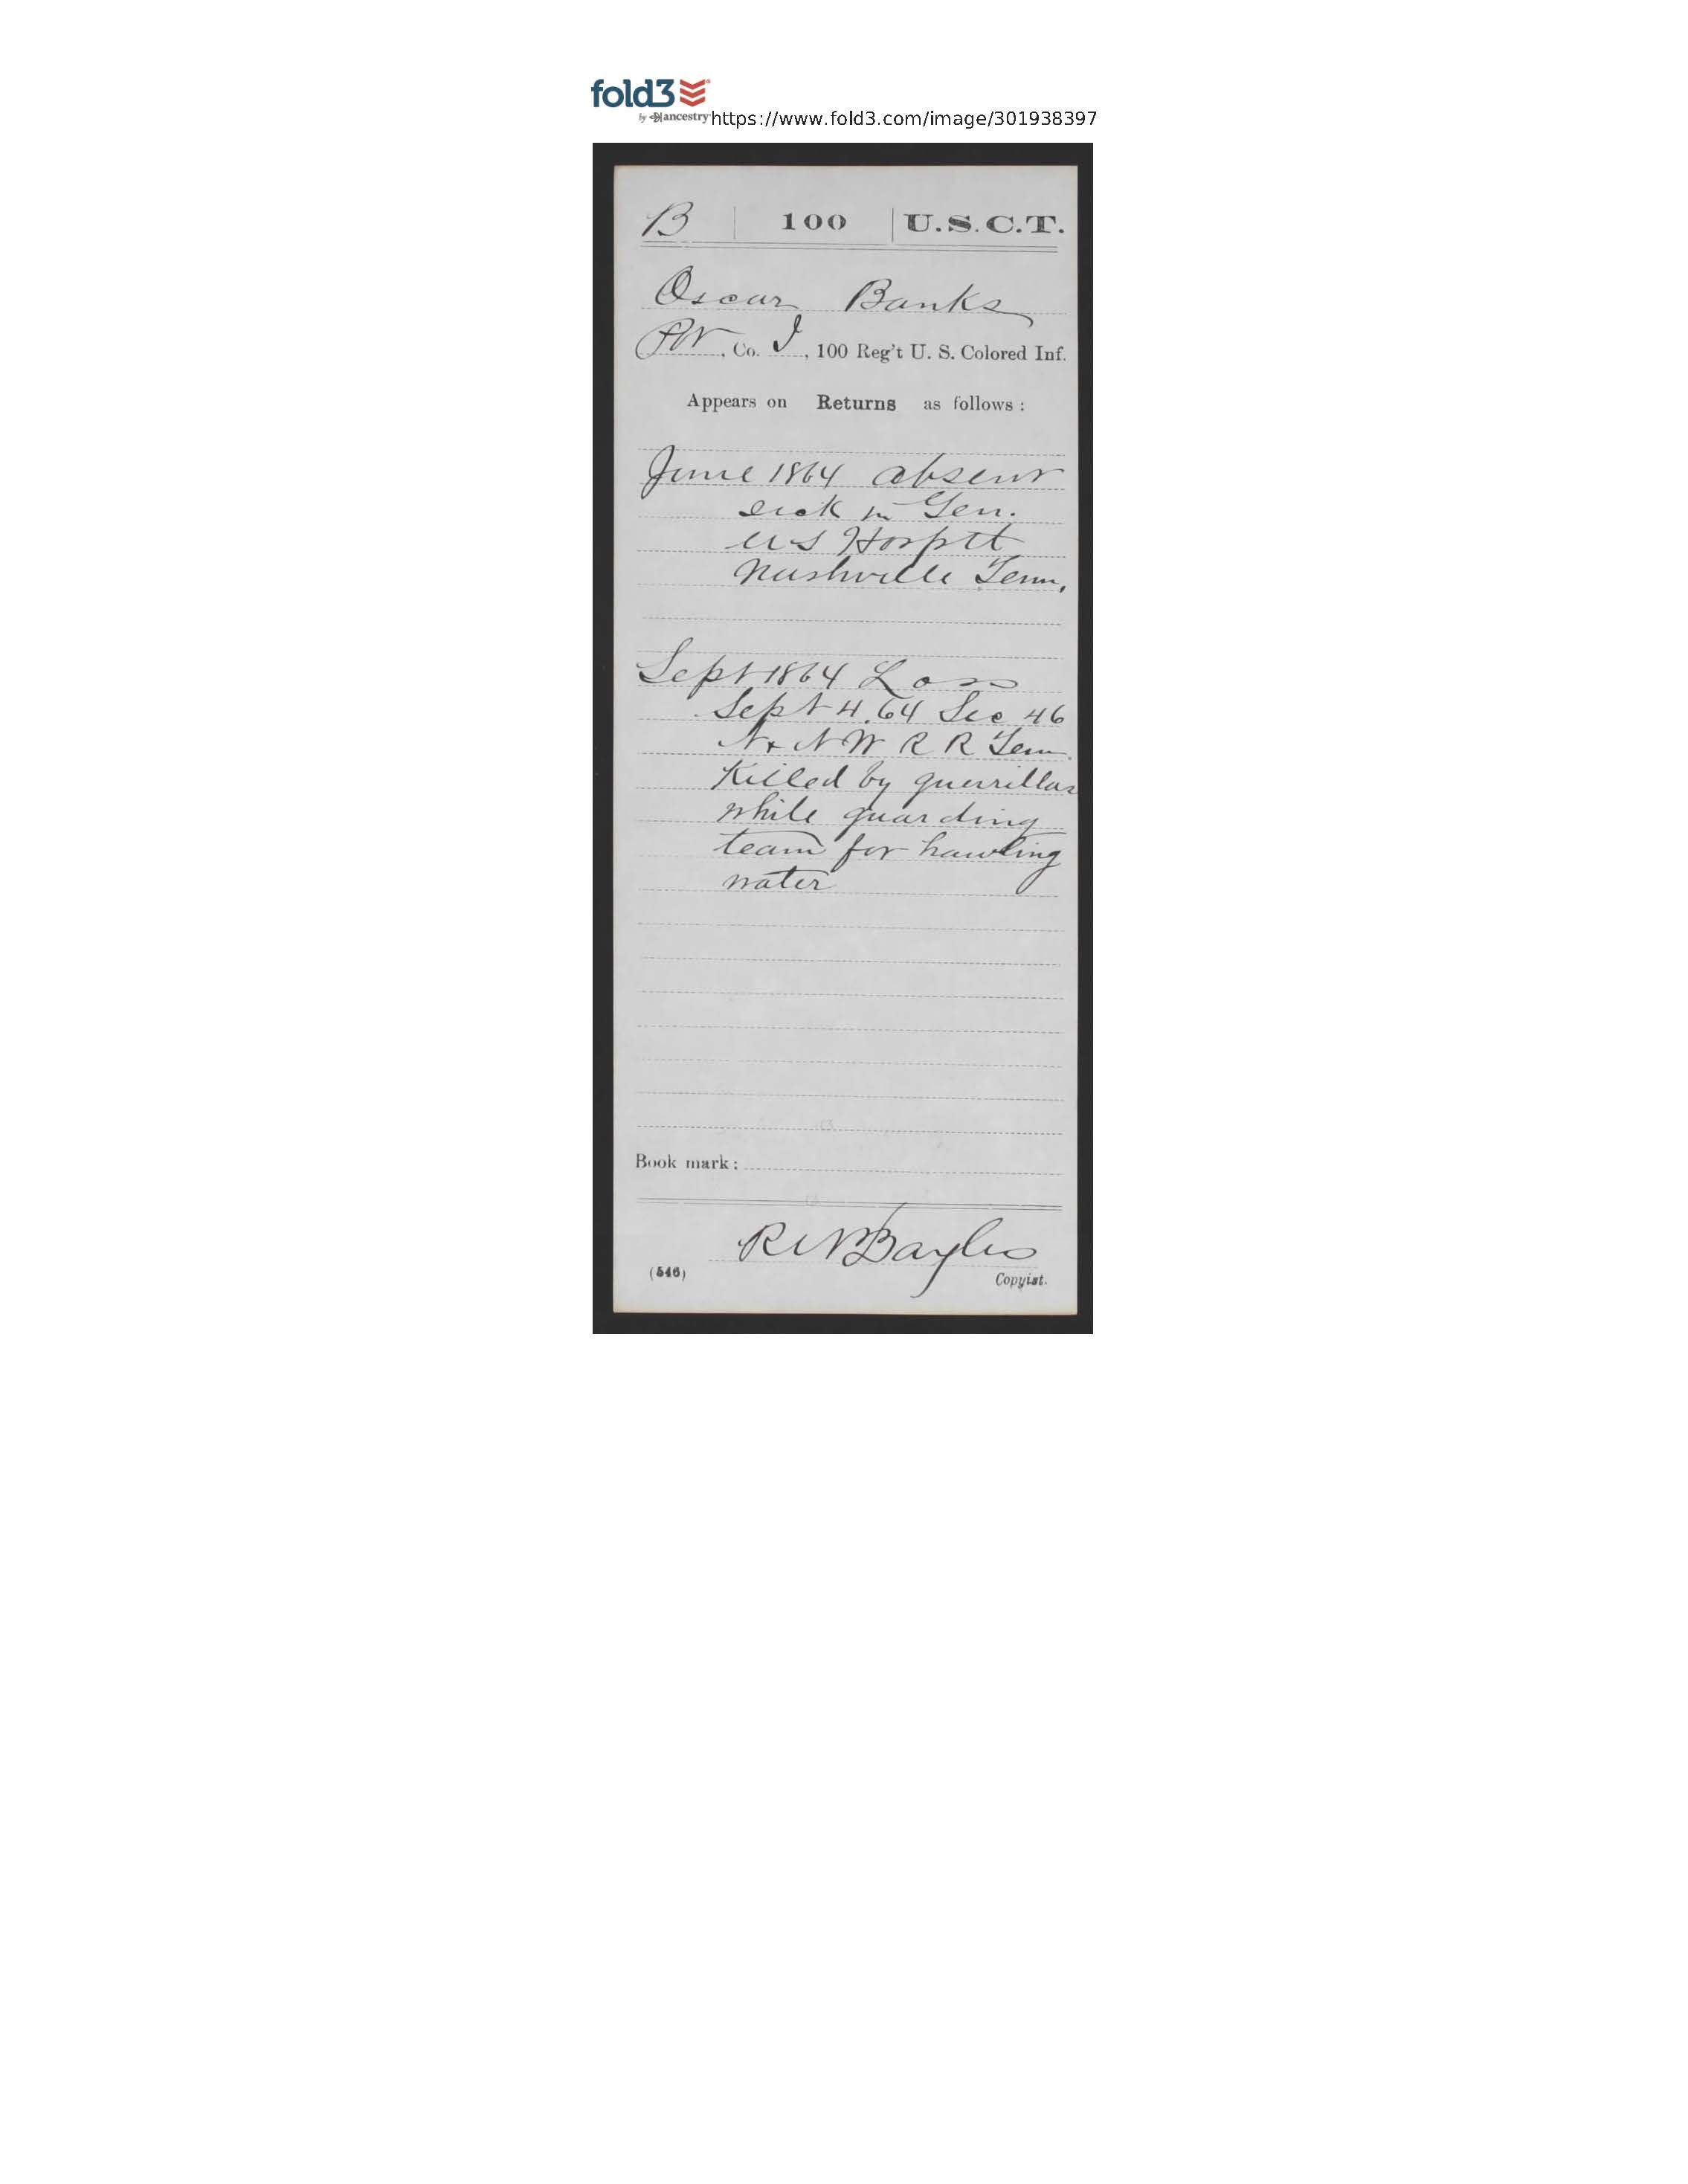 fold3
by ancestry https://www.fold3.com/image/301938397
B | 100 | U.S.C.T.
Oscar Banks
Pvt, Co. I, 100 Reg't U. S. Colored Inf.
Appears on Returns as follows:
June 1864 absent
sick in Gen.
U S Hospt
Nashville Tenn.
Sept 1864 Loss
Sept 4. 64 Sec 46
N & N W R R Tenn.
Killed by guerrillas
while guarding
team for hawling
water
Book mark:
Bayles
(546) Copyist.